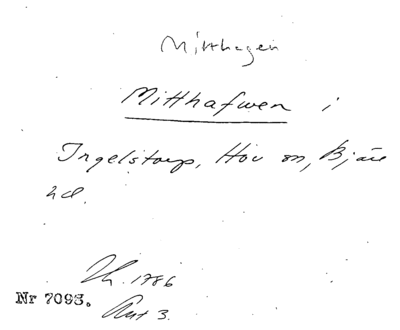 Mitthagen
Mitthafwen i
Ingelstorp, Hov sn, Bjäre
hd.
1786
Nr 7093.
Akt 3.